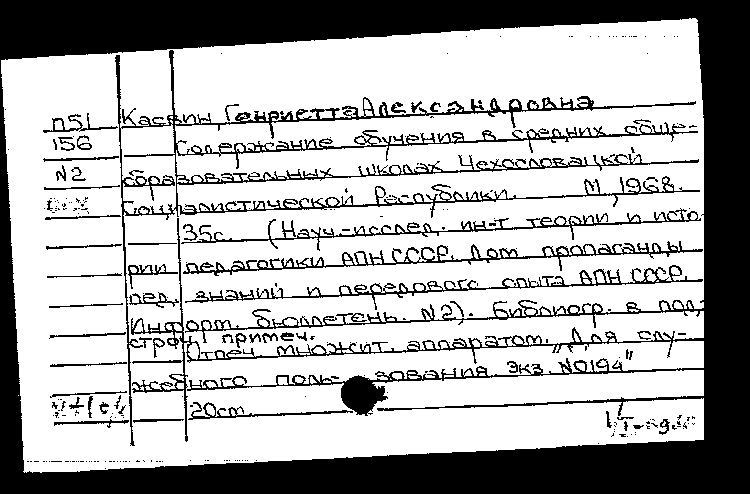 П51 Касвин, Генриетта Александровна
156 Содержание обучения в средних обще-
N2 образовательных школах Чехословацкой
Социалистической Республики. М., 1968.
35с. (Науч.-исслед. ин-т теории и исто-
рии педагогики АПН СССР. Дом пропаганды
пед. знаний и передового опыта АПН СССР.
Информ. бюллетень. N2). Библиогр. в под-
строч. примеч.
Отпеч. множит. аппаратом. "Для слу-
жебного пользования. Экз. N0194"
20cm.